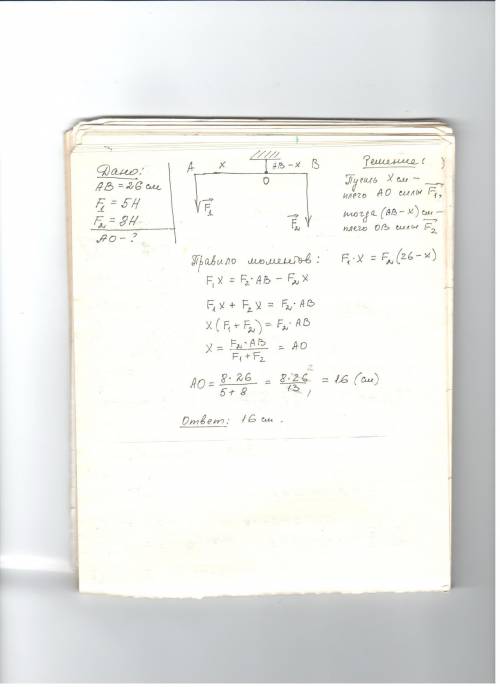 Дано:
AB = 26 см
F1 = 5Н
F2 = 8Н
AO - ?
A x AB - x B
O
F1
F2
Решение:
Пусть X см -
плечо AO силы F1,
тогда (AB - x) см -
плечо OB силы F2
Правило моментов: F1·x = F2(26 - x)
F1x = F2·AB - F2x
F1x + F2x = F2·AB
x(F1 + F2) = F2·AB
x = F2·AB / (F1 + F2) = AO
AO = 8·26 / (5 + 8) = 8·26 2 / 13 1 = 16 (см)
Ответ: 16 см.